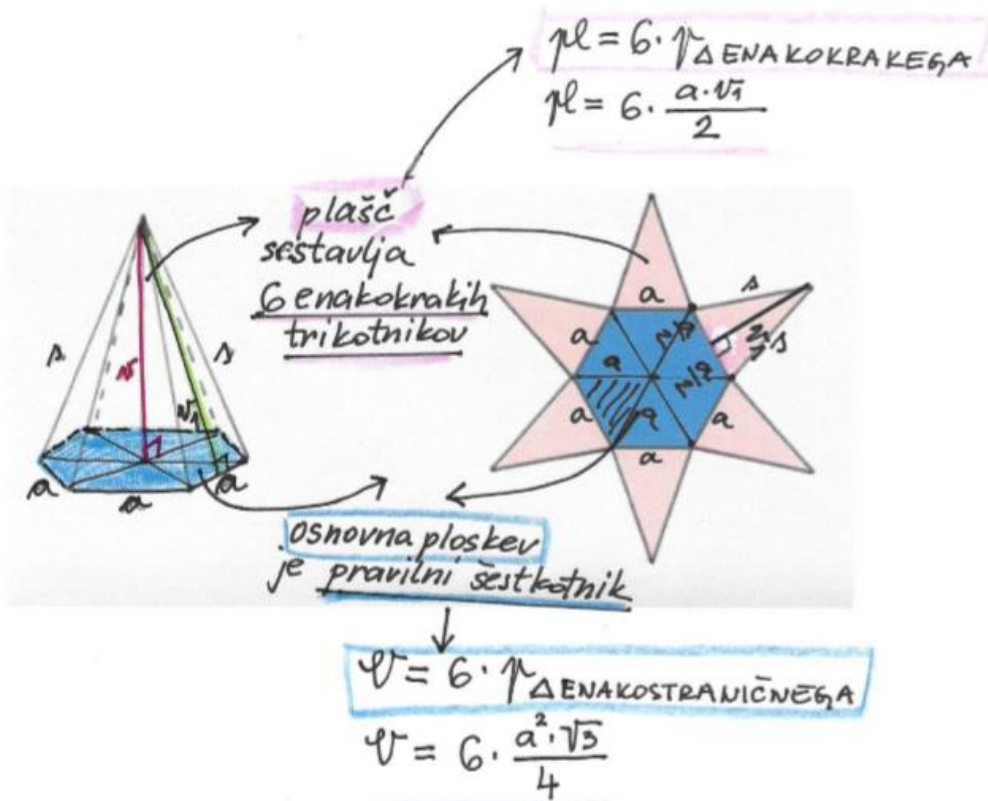 pl = 6 · p Δ ENAKOKRAKEGA
pl = 6 · a · v₁ / 2
plašč
sestavlja
6 enakokrakih
trikotnikov
s
v
s
v₁
a
a
a
a
s
a
a
a
a
a
a
s
osnovna ploskev
je pravilni šestkotnik
O = 6 · p Δ ENAKOSTRANIČNEGA
O = 6 · a² · √3 / 4